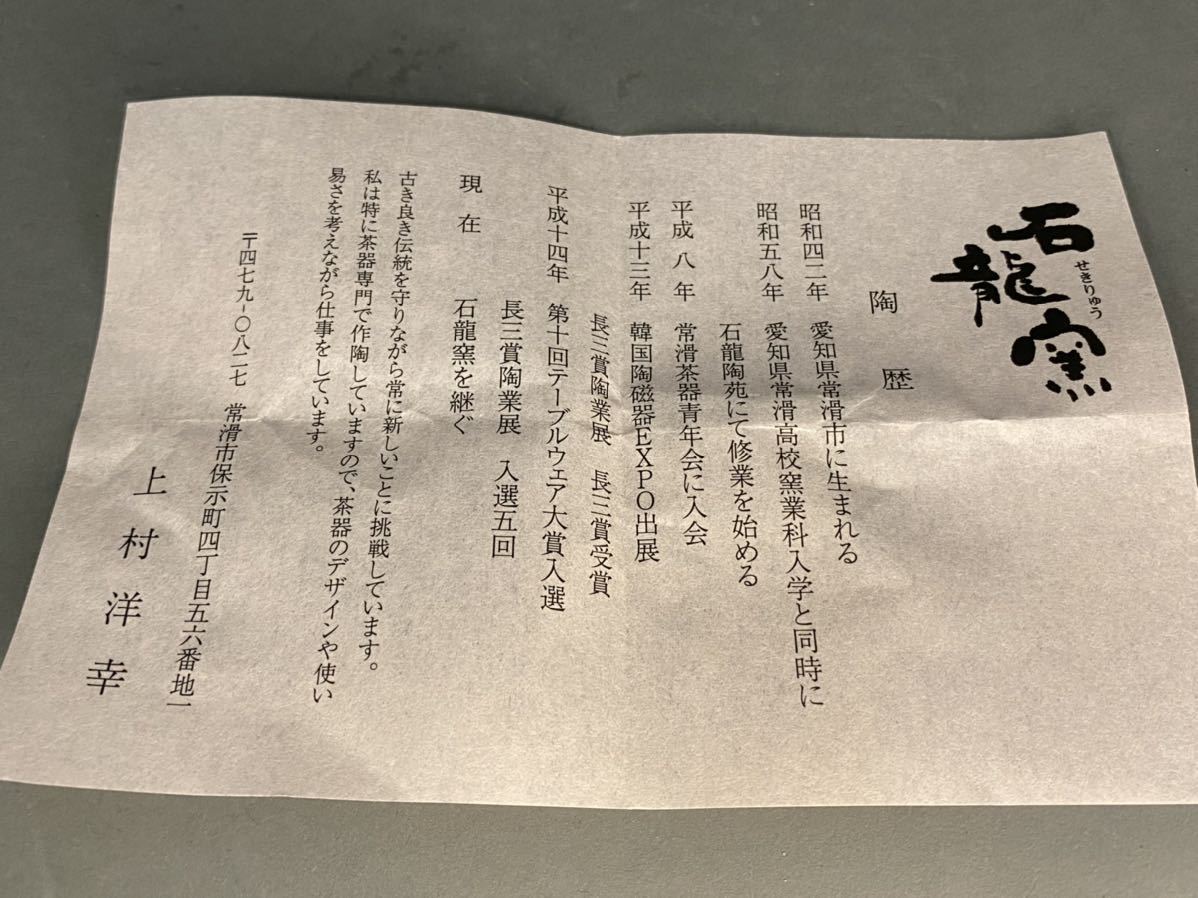 石龍窯
せきりゅう
陶歴
昭和四二年 愛知県常滑市に生まれる
昭和五八年 愛知県常滑高校窯業科入学と同時に
石龍陶苑にて修業を始める
平成八年 常滑茶器青年会に入会
平成十三年 韓国陶磁器EXPO出展
長三賞陶業展 長三賞受賞
平成十四年 第十回テーブルウェア大賞入選
長三賞陶業展 入選五回
現在 石龍窯を継ぐ
古き良き伝統を守りながら常に新しいことに挑戦しています。
私は特に茶器専門で作陶していますので、茶器のデザインや使い
易さを考えながら仕事をしています。
〒四七九-〇八二七 常滑市保示町四丁目五六番地一
上村洋幸